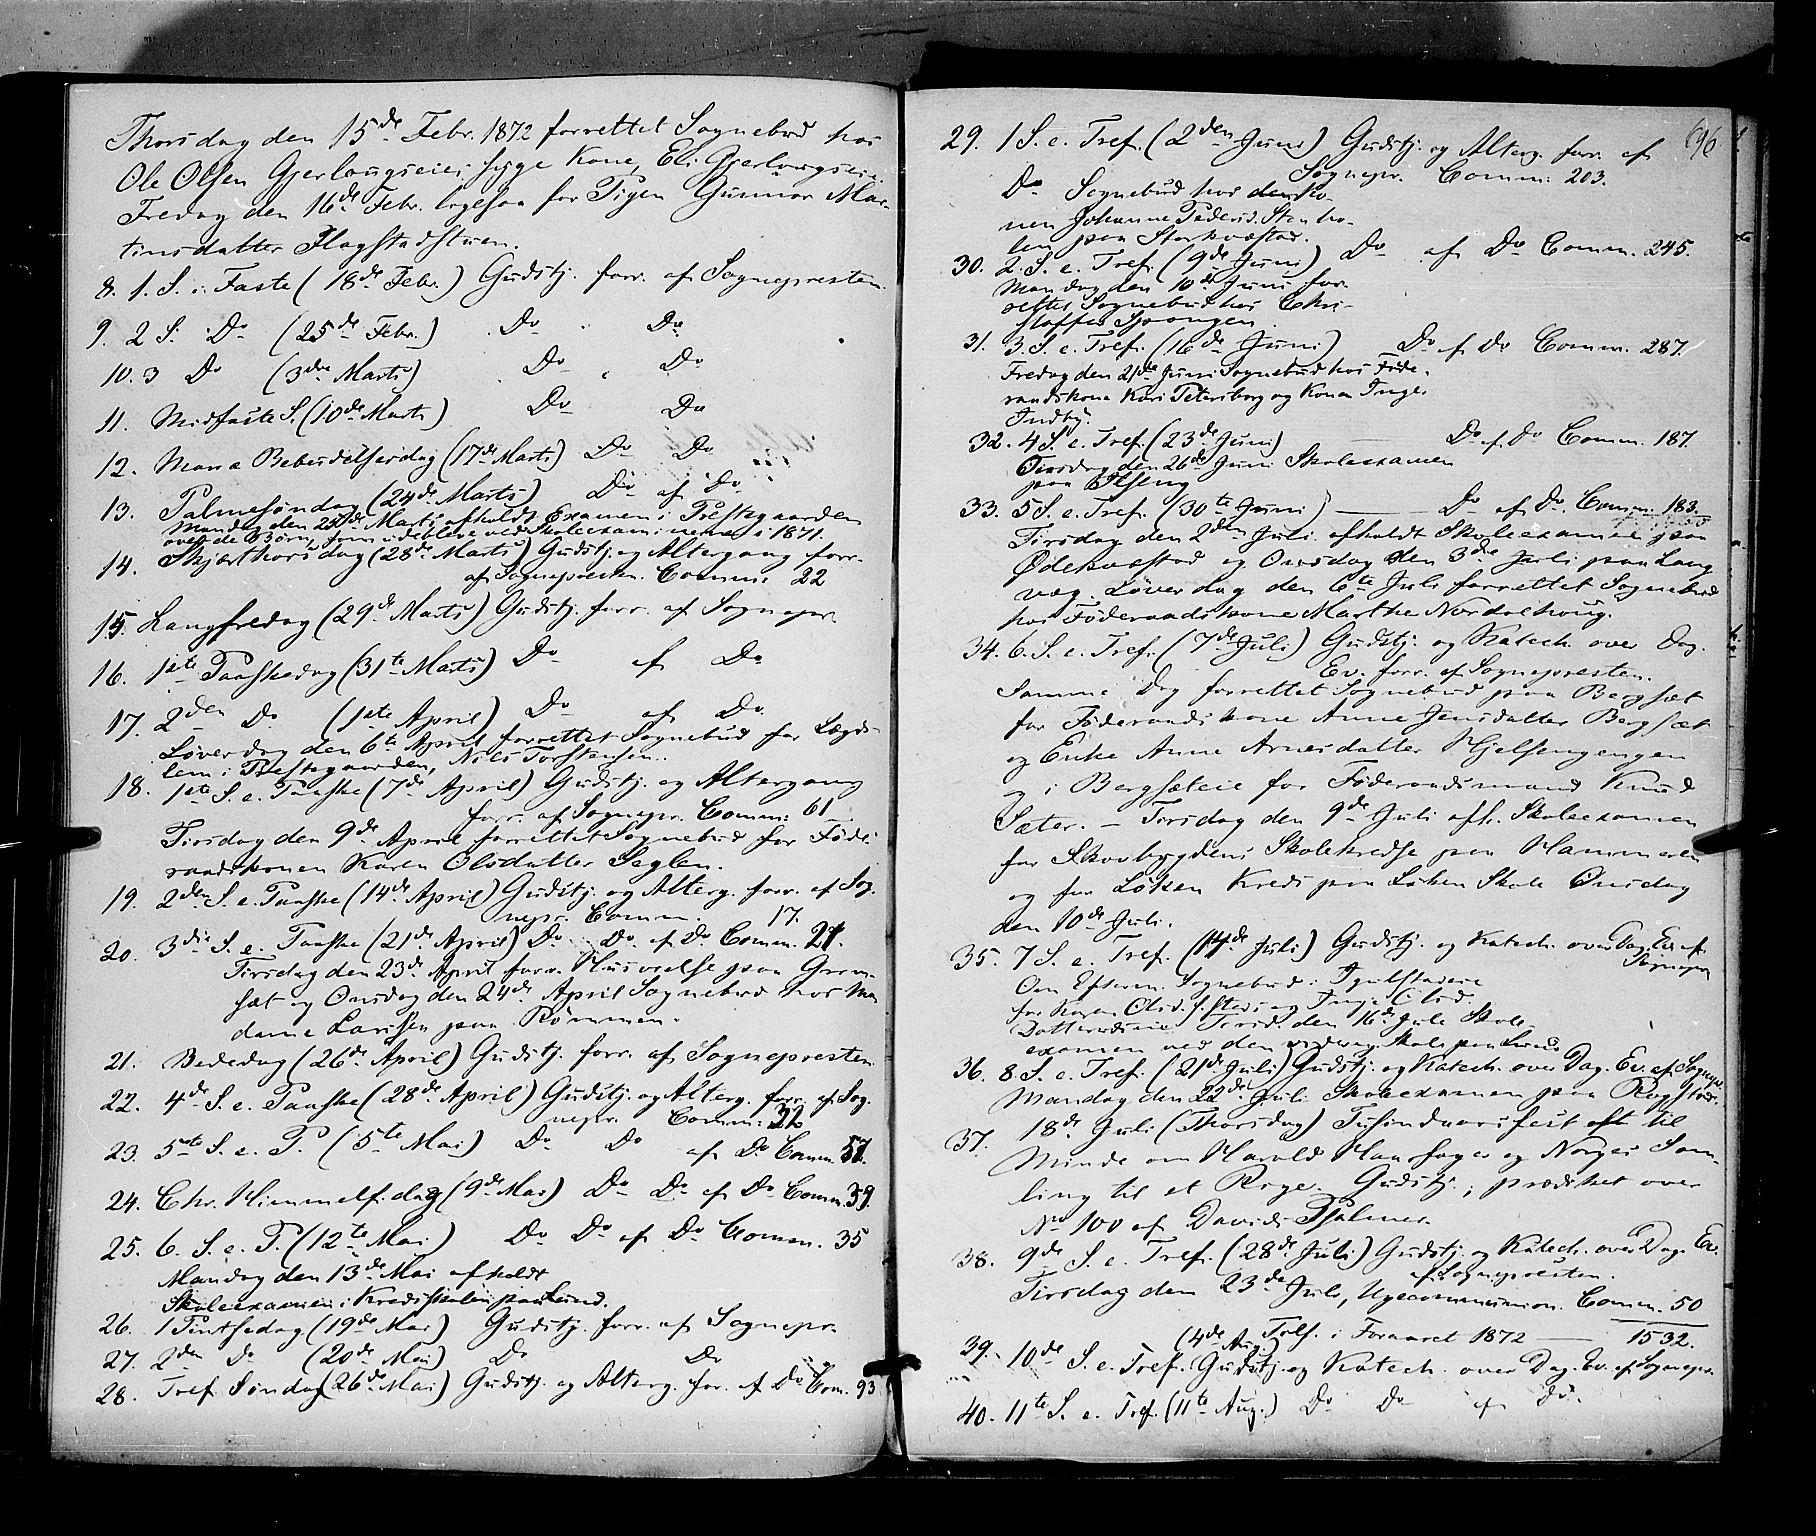 Thorsdag den 15de Febr. 1872 forrettet Sognebud hos
Ole Olsen Gjerlaugseies syge Kone, Eli Gjerlaugseie.
Fredag den 16de Febr. ligesaa for Pigen Gunnor Mar-
tinsdatter Flagstadstuen.
8. 1. S. i Faste (18de Febr.) Gudstj. forr. af Sognepresten.
9. 2 S. Do (25de Febr.) Do Do
10. 3 Do (3die Marts) Do Do
11. Midfaste S. (10de Marts) Do Do
12. Mariæ Bebudelsesdag (17de Marts) Do Do
13. Palmesøndag (24de Marts) Do af Do
Mandag den 25de Marts afholdt Examen i Prestegaarden
over de Børn, som udebleve ved Skoleexaminerne i 1871.
14. Skjærthorsdag (28de Marts) Gudstj. og Altergang forr.
af Sognepresten. Commun. 22
15. Langfredag (29de Marts) Gudstj. forr. af Sognepr.
16. 1ste Paaskedag (31te Marts) Do af Do
17. 2den Do (1ste April) Do af Do
Løverdag den 6te April forrettet Sognebud for Lægds-
lem i Prestegaarden, Nils Torstensen.
18. 1ste S. e. Paaske (7de April) Gudstj. og Altergang
forr. af Sognepr. Comm. 61
Tirsdag den 9de April forrettet Sognebud for Føde-
raadskonen Karen Olsdatter Seglen.
19. 2den S. e. Paaske (14de April) Gudstj. og Alterg. forr. af Sog-
nepr. Comm. 17.
20. 3die S. e. Paaske (21de April) Do Do af Do Comm. 21.
Tirsdag den 23de April forr. Husvielse paa Grøn-
sæt og Onsdag den 24de April Sognebud hos Ma
dame Larssen paa Rømmen.
21. Bededag (26de April) Gudstj. forr. af Sognepresten.
22. 4de S. e. Paaske (28de April) Gudstj. og Alterg. forr. af Sog-
nepr. Comm. 32
23. 5te S. e. P. (5te Mai) Do Do af Do Comm. 57.
24. Chr. Himmelf. dag (9de Mai) Do Do af Do Comm. 39.
25. 6. S. e. P. (12te Mai) Do Do af Do Comm. 35
Mandag den 13de Mai afholdt
Skoleexamen i Kredsskolen paa Lund.
26. 1 Pintsedag (19de Mai) Gudstj. forr. af Sognepr.
27. 2den Do (20de Mai) Do Do
28. Tref. Søndag (26de Mai) Gudstj. og Alterg. forr. af Do Com. 93
696
29. 1 S. e. Tref. (2den Juni) Gudstj. og Alterg. forr. af
Sognepr. Comm. 203.
Do Sognebud hos den Ko-
nen Johanne Pedersd. Stenho-
len paa Storhvæstad.
30. 2. S. e. Tref. (9de Juni) Do af Do Comm. 245.
Mandag den 10de Juni for-
rettet Sognebud hos Chri-
stoffer
31. 3. S. e. Tref. (16de Juni) Do af Do Comm. 287.
Fredag den 21de Juni Sognebud hos Føde-
raadskone Kari Petersborg og Konen Inge.
Indby.
32. 4 S. e. Tref. (23de Juni) Do af Do Comm. 187.
Tirsdag den 26de Juni Skoleexamen
paa
33. 5 S. e. Tref. (30te Juni) Do af Do Comm. 183.
Tirsdag den 2den Juli afholdt Skoleexamen paa
Ødekvæstad og Onsdag den 3die Juli paa Lang
væg. Løverdag den 6te Juli forrettet Sognebud
hos Føderaadskone Marthe Nordalhoug.
34. 6. S. e. Tref. (7de Juli) Gudstj. og Katech. over Dag.
Ev. forr. af Sognepresten.
Samme Dag forrettet Sognebud paa Bergsæt
for Føderaadskone Anne Jensdatter Bergsæt
og Enke Anne Arnesdatter Hjelsengengen
og i Bergsæteie for Føderaadsmand Knud
Sæter. – Tirsdag den 9de Juli afh. Skoleexamen
for Skovbygdens Skolekredse paa Hammeren
og for Løken Kreds paa Løken Skole Onsdag
den 10de Juli.
35. 7 S. e. Tref. (14de Juli) Gudstj. og Katech. over Dag. Ev. af
Sognepr
Om Efterm. Sognebud i
for Karen Olsd. og Inge Olsd.
Tirsd. den 16de Juli Skole
examen ved den Skole paa Lund
36. 8. S. e. Tref. (21de Juli) Gudstj. og Katech. over Dag. Ev. af Sognepr.
Mandag den 22de Juli Skoleexamen paa Rogstad.
37. 18de Juli (Thorsdag) Tusindaarsfest til
Minde om Harald Haarfager og Norges Sam-
ling til et Rige. Gudstj.; prædiket over
No 100 af Davids Psalmer.
38. 9de S. e. Tref. (28de Juli) Gudstj. og Katech. over Dag. Ev.
af Sognepresten.
Tirsdag den 23de Juli, Ugecommunion. Comm. 50
Tils. i Foraaret 1872 — 1532.
39. 10de S. e. Tref. (4de Aug.) Gudstj. og Katech. over Dag. Ev. af Sognepr.
40. 11te S. e. Tref. (11te Aug.) Do Do af Do.